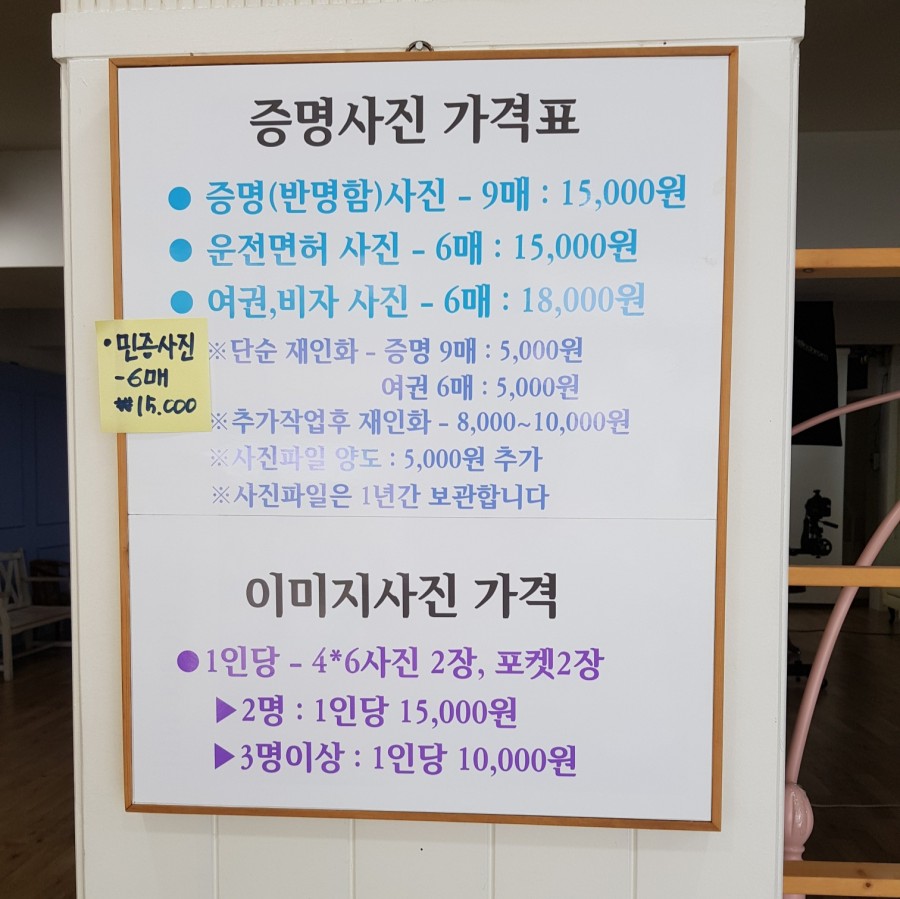 증명사진 가격표
● 증명(반명함)사진 - 9매 : 15,000원
● 운전면허 사진 - 6매 : 15,000원
● 여권,비자 사진 - 6매 : 18,000원
• 민증사진
-6매
₩15.000
※단순 재인화 - 증명 9매 : 5,000원
여권 6매 : 5,000원
※추가작업후 재인화 - 8,000~10,000원
※사진파일 양도 : 5,000원 추가
※사진파일은 1년간 보관합니다
이미지사진 가격
●1인당 - 4*6사진 2장, 포켓2장
▶2명 : 1인당 15,000원
▶3명이상 : 1인당 10,000원